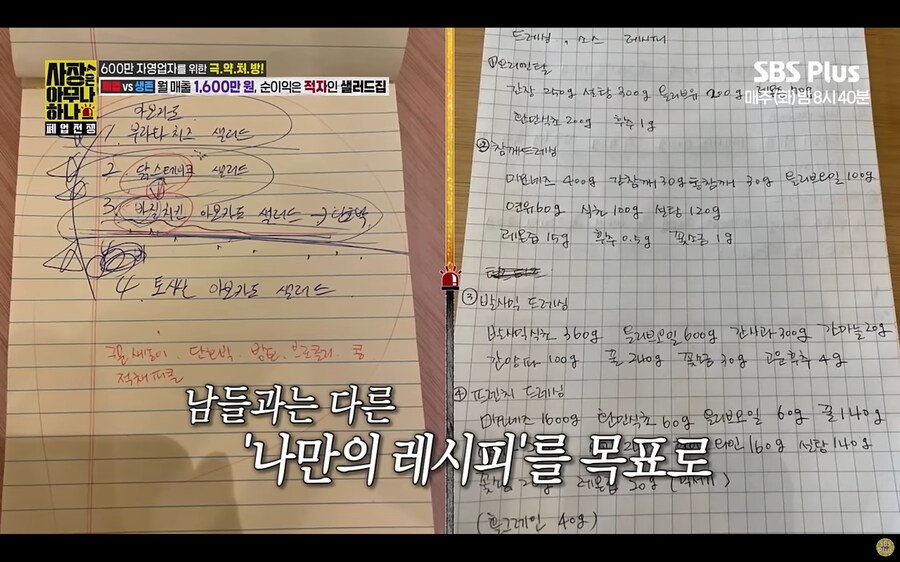 사장은
아무나
하나
폐업전쟁
600만 자영업자를 위한 극.약.처.방!
폐업 vs 생존 월 매출 1,600만 원, 순이익은 적자인 샐러드집
SBS Plus
매주 (화) 밤 8시 40분
1. 부라타 치즈 샐러드
2. 닭스테이크 샐러드
3. 바질치킨 아보카도 샐러드 → 단호박
4. 아보카도 샐러드
단호박 . 브로콜리 . 콩
적채피클
드레싱 . 소스 레시피
① 오리엔탈
간장 250g 설탕 300g 올리브유 200g
200g 후추 1g
② 참깨드레싱
마요네즈 400g 간참깨 30g 통참깨 30g 올리브오일 100g
연유 60g 식초 100g 설탕 120g
레몬즙 15g 후추 0.5g 꽃소금 1g
③ 발사믹 드레싱
발사믹식초 360g 올리브오일 600g 간사과 300g 간마늘 20g
간양파 100g 꿀 240g 꽃소금 30g 고운후추 4g
④ 프렌치 드레싱
마요네즈 1600g 60g 올리브오일 60g 꿀 140g
160g 설탕 140g
레몬즙 20g
(홀그레인 40g)
남들과는 다른
'나만의 레시피'를 목표로